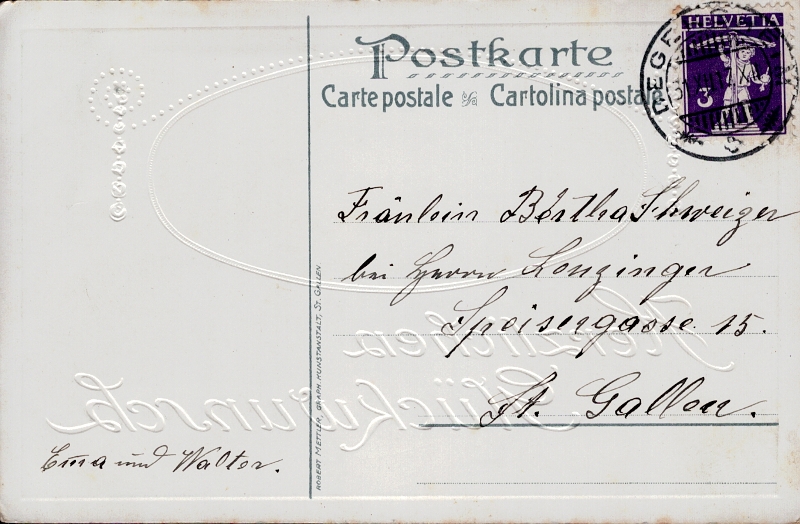 Postkarte
Carte postale Cartolina postale
HELVETIA
3
Fräulein Bertha Schweizer
bei Herrn Lonzinger
Speisergasse 15.
St. Gallen.
Emma und Walter.
ROBERT METTLER, GRAPH. KUNSTANSTALT, ST. GALLEN
Herzlichen
Glückwunsch